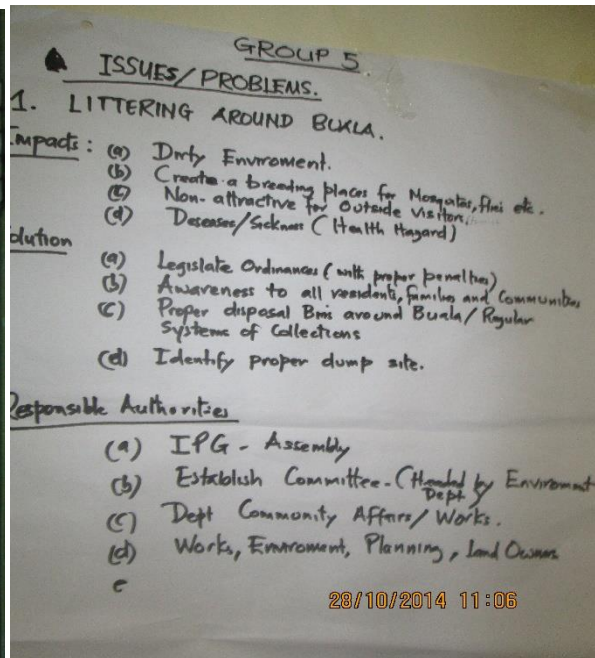 GROUP 5
ISSUES/PROBLEMS.
1. LITTERING AROUND BUALA.
Impacts: (a) Dirty Enviroment.
(b) Create a breeding places for Mosquitos, flies etc.
(c) Non-attractive for Outside Visitors.
(d) Deseases/Sickness (Health Hazard)
olution
(a) Legislate Ordinances (with proper penalties)
(b) Awareness to all residents, families and Communities
(c) Proper disposal Bins around Buala/Regular
Systems of Collections
(d) Identify proper dump site.
Responsible Authorities
(a) IPG - Assembly
(b) Establish Committee - (Headed by Enviroment
Dept
(c) Dept Community Affairs/Works.
(d) Works, Enviroment, Planning, Land Owners
e
28/10/2014 11:06